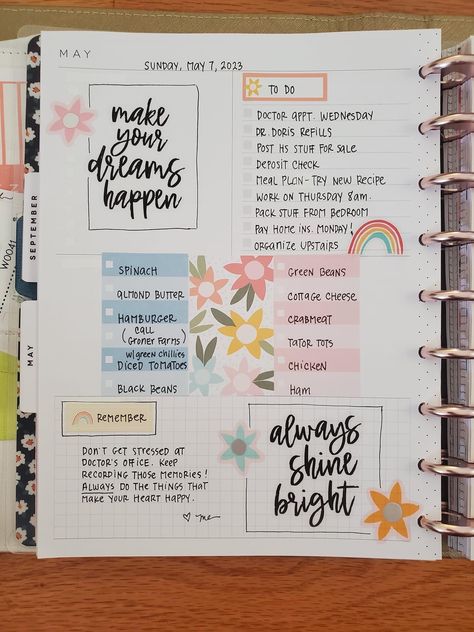 MAY
SUNDAY, MAY 7, 2023
make
your
dreams
happen
TO DO
DOCTOR APPT. WEDNESDAY
DR. DORIS REFILLS
POST HS STUFF FOR SALE
DEPOSIT CHECK
MEAL PLAN - TRY NEW RECIPE
WORK ON THURSDAY 8AM.
PACK STUFF FROM BEDROOM
PAY HOME INS. MONDAY!
ORGANIZE UPSTAIRS
SEPTEMBER
W0041
MAY
SPINACH
ALMOND BUTTER
HAMBURGER
(CALL
GRONER FARMS)
W/GREEN CHILLIES
DICED TOMATOES
BLACK BEANS
GREEN BEANS
COTTAGE CHEESE
CRABMEAT
TATOR TOTS
CHICKEN
HAM
REMEMBER
DON'T GET STRESSED AT
DOCTOR'S OFFICE. KEEP
RECORDING THOSE MEMORIES!
ALWAYS DO THE THINGS THAT
MAKE YOUR HEART HAPPY.
♡ me
always
shine
bright